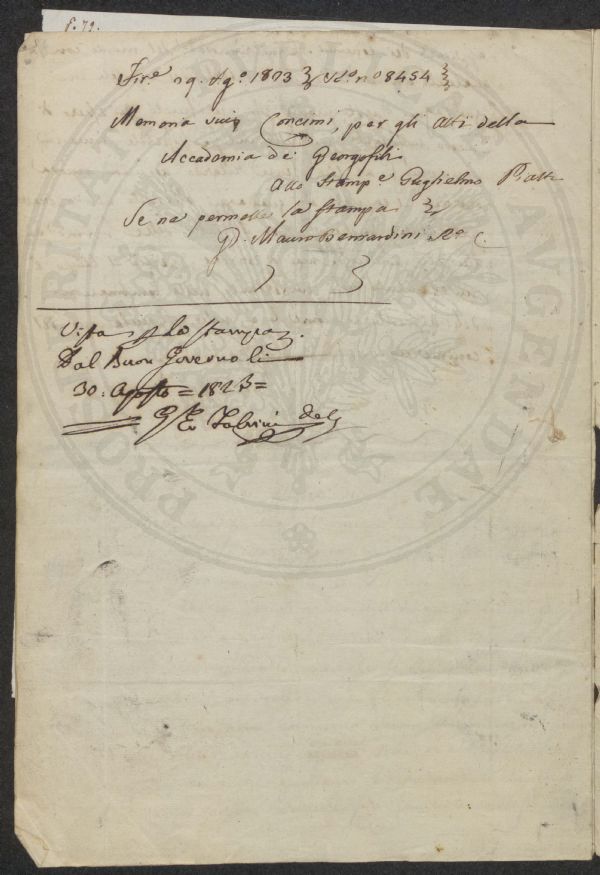 f. 72.
Fir.e 29. Ag.o 1823 n.o 8454
Memoria sui Concimi, per gli Atti della
Accademia dei Georgofili
Allo Stamp.e Guglielmo Piatti
Se ne permette la Stampa
Mauro Bernardini
Vista la stampa.
Dal Buon Governo li
30. Agosto = 1823 =
PROSPERITATI AUGENDAE